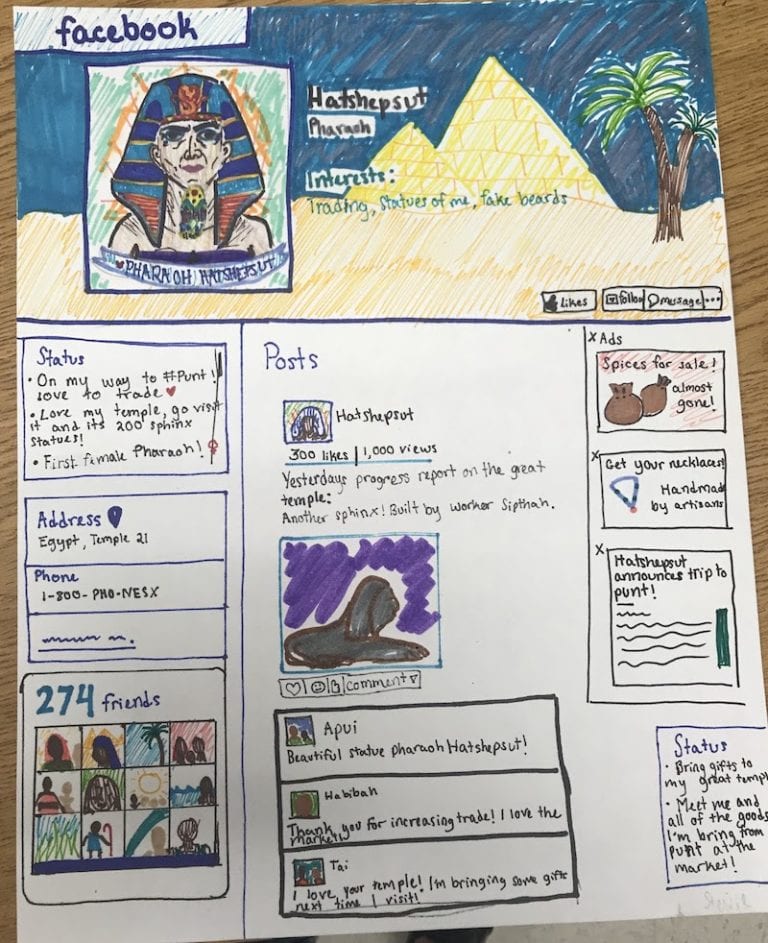 facebook
Hatshepsut
Pharaoh
Interests:
Trading, Statues of me, fake beards
PHARAOH HATSHEPSUT
Likes
follow
message
...
Status
• On my way to #Punt!
love to trade
• Love my temple, go visit
it and its 200 sphinx
statues!
• First female Pharaoh!
Address
Egypt, Temple 21
Phone
1-800-PHO-NESX
274 friends
Posts
Hatshepsut
300 likes | 1,000 views
Yesterdays progress report on the great
temple:
Another sphinx! Built by worker Sipthah.
comment
Apui
Beautiful statue pharaoh Hatshepsut!
Habibah
Thank you for increasing trade! I love the
market!
Tai
I love your temple! I'm bringing some gifts
next time I visit!
x Ads
Spices for sale!
almost
gone!
x
Get your necklaces!
Handmad
by artisans
x
Hatshepsut
announces trip to
punt!
Status
• Bring gifts to
my great templ
• Meet me and
all of the goods
I'm bring from
punt at the
market!